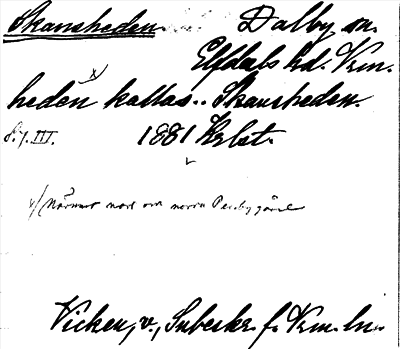 Skansheden. Dalby sn.
Elfdals hd. Vrm.
heden x) kallas.. Skansheden.
Sig. III. 1881 Krlst.
x) Närmast norr om norra Persby gärde
Vicken, v., Inbeskr. f. Vrm. ln.